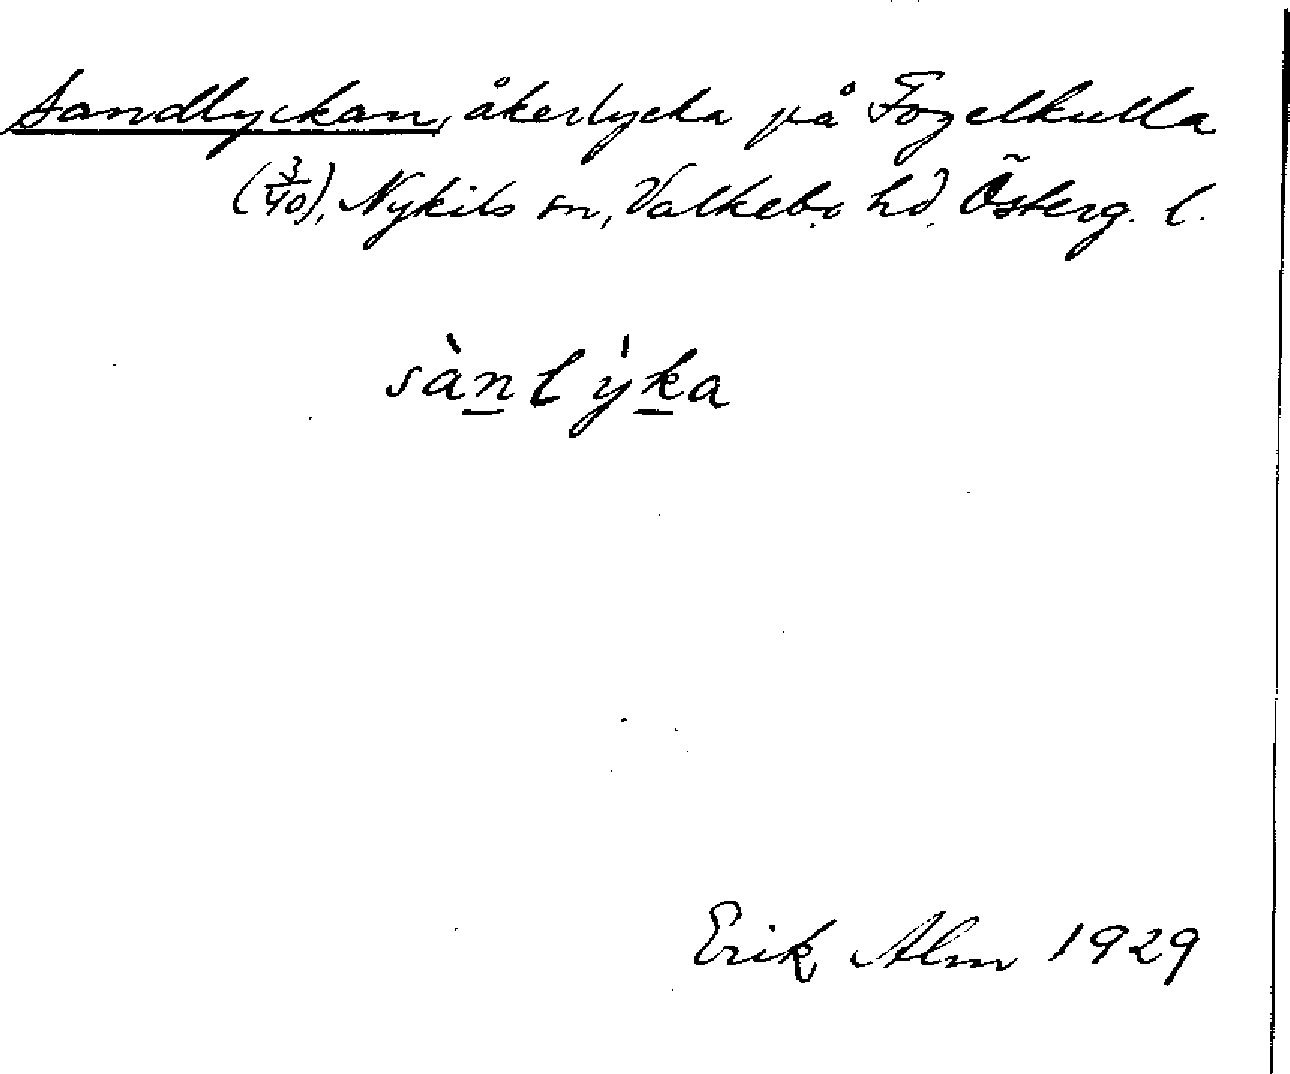 Sandlyckan, åkerlycka på Fogelkulla
(3/40), Nykils sn, Valkebo hd. Österg. l.
sànlýka
Erik Alm 1929